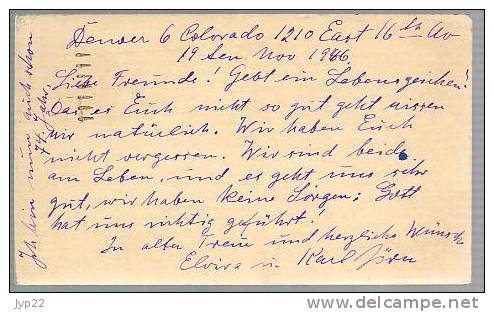 Denver 6 Colorado 1210 East 16th Av
19 Nov 1946
Liebe Freunde! Gebt ein Lebenszeichen!
Das es Euch nicht so gut geht wissen
wir natürlich. Wir haben Euch
nicht vergessen. Wir sind beide
am Leben, und es geht uns sehr
gut, wir haben keine Sorgen; Gott
hat uns richtig geführt!
In alter Treue und herzliche Wünsche
Elvira u Karl Jörn
Ich bin nun auch schon
74. Jahr
jyp22
www.delcampe.net